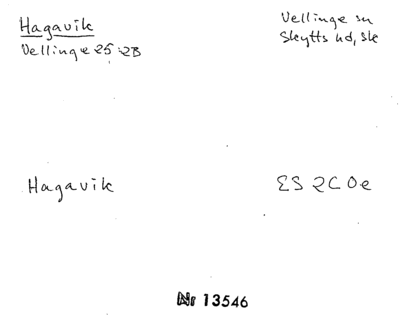 Hagavik
Vellinge 25:2B
Vellinge sn
Skytts hd, Sk
Hagavik
ES 2C 0e
Nr 13546